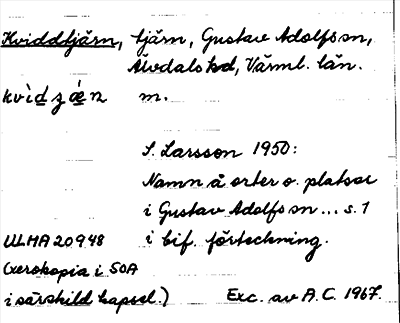 Kviddtjärn, tjärn, Gustav Adolfs sn,
Älvdals hd, Värml. län.
kvìdzǽn m.
S. Larsson 1950:
Namn å orter o. platser
i Gustav Adolfs sn... s. 1
ULMA 20948 i bif. förteckning.
(xerokopia i SOA
i särskild kapsel.) Exc. av A.C. 1967.